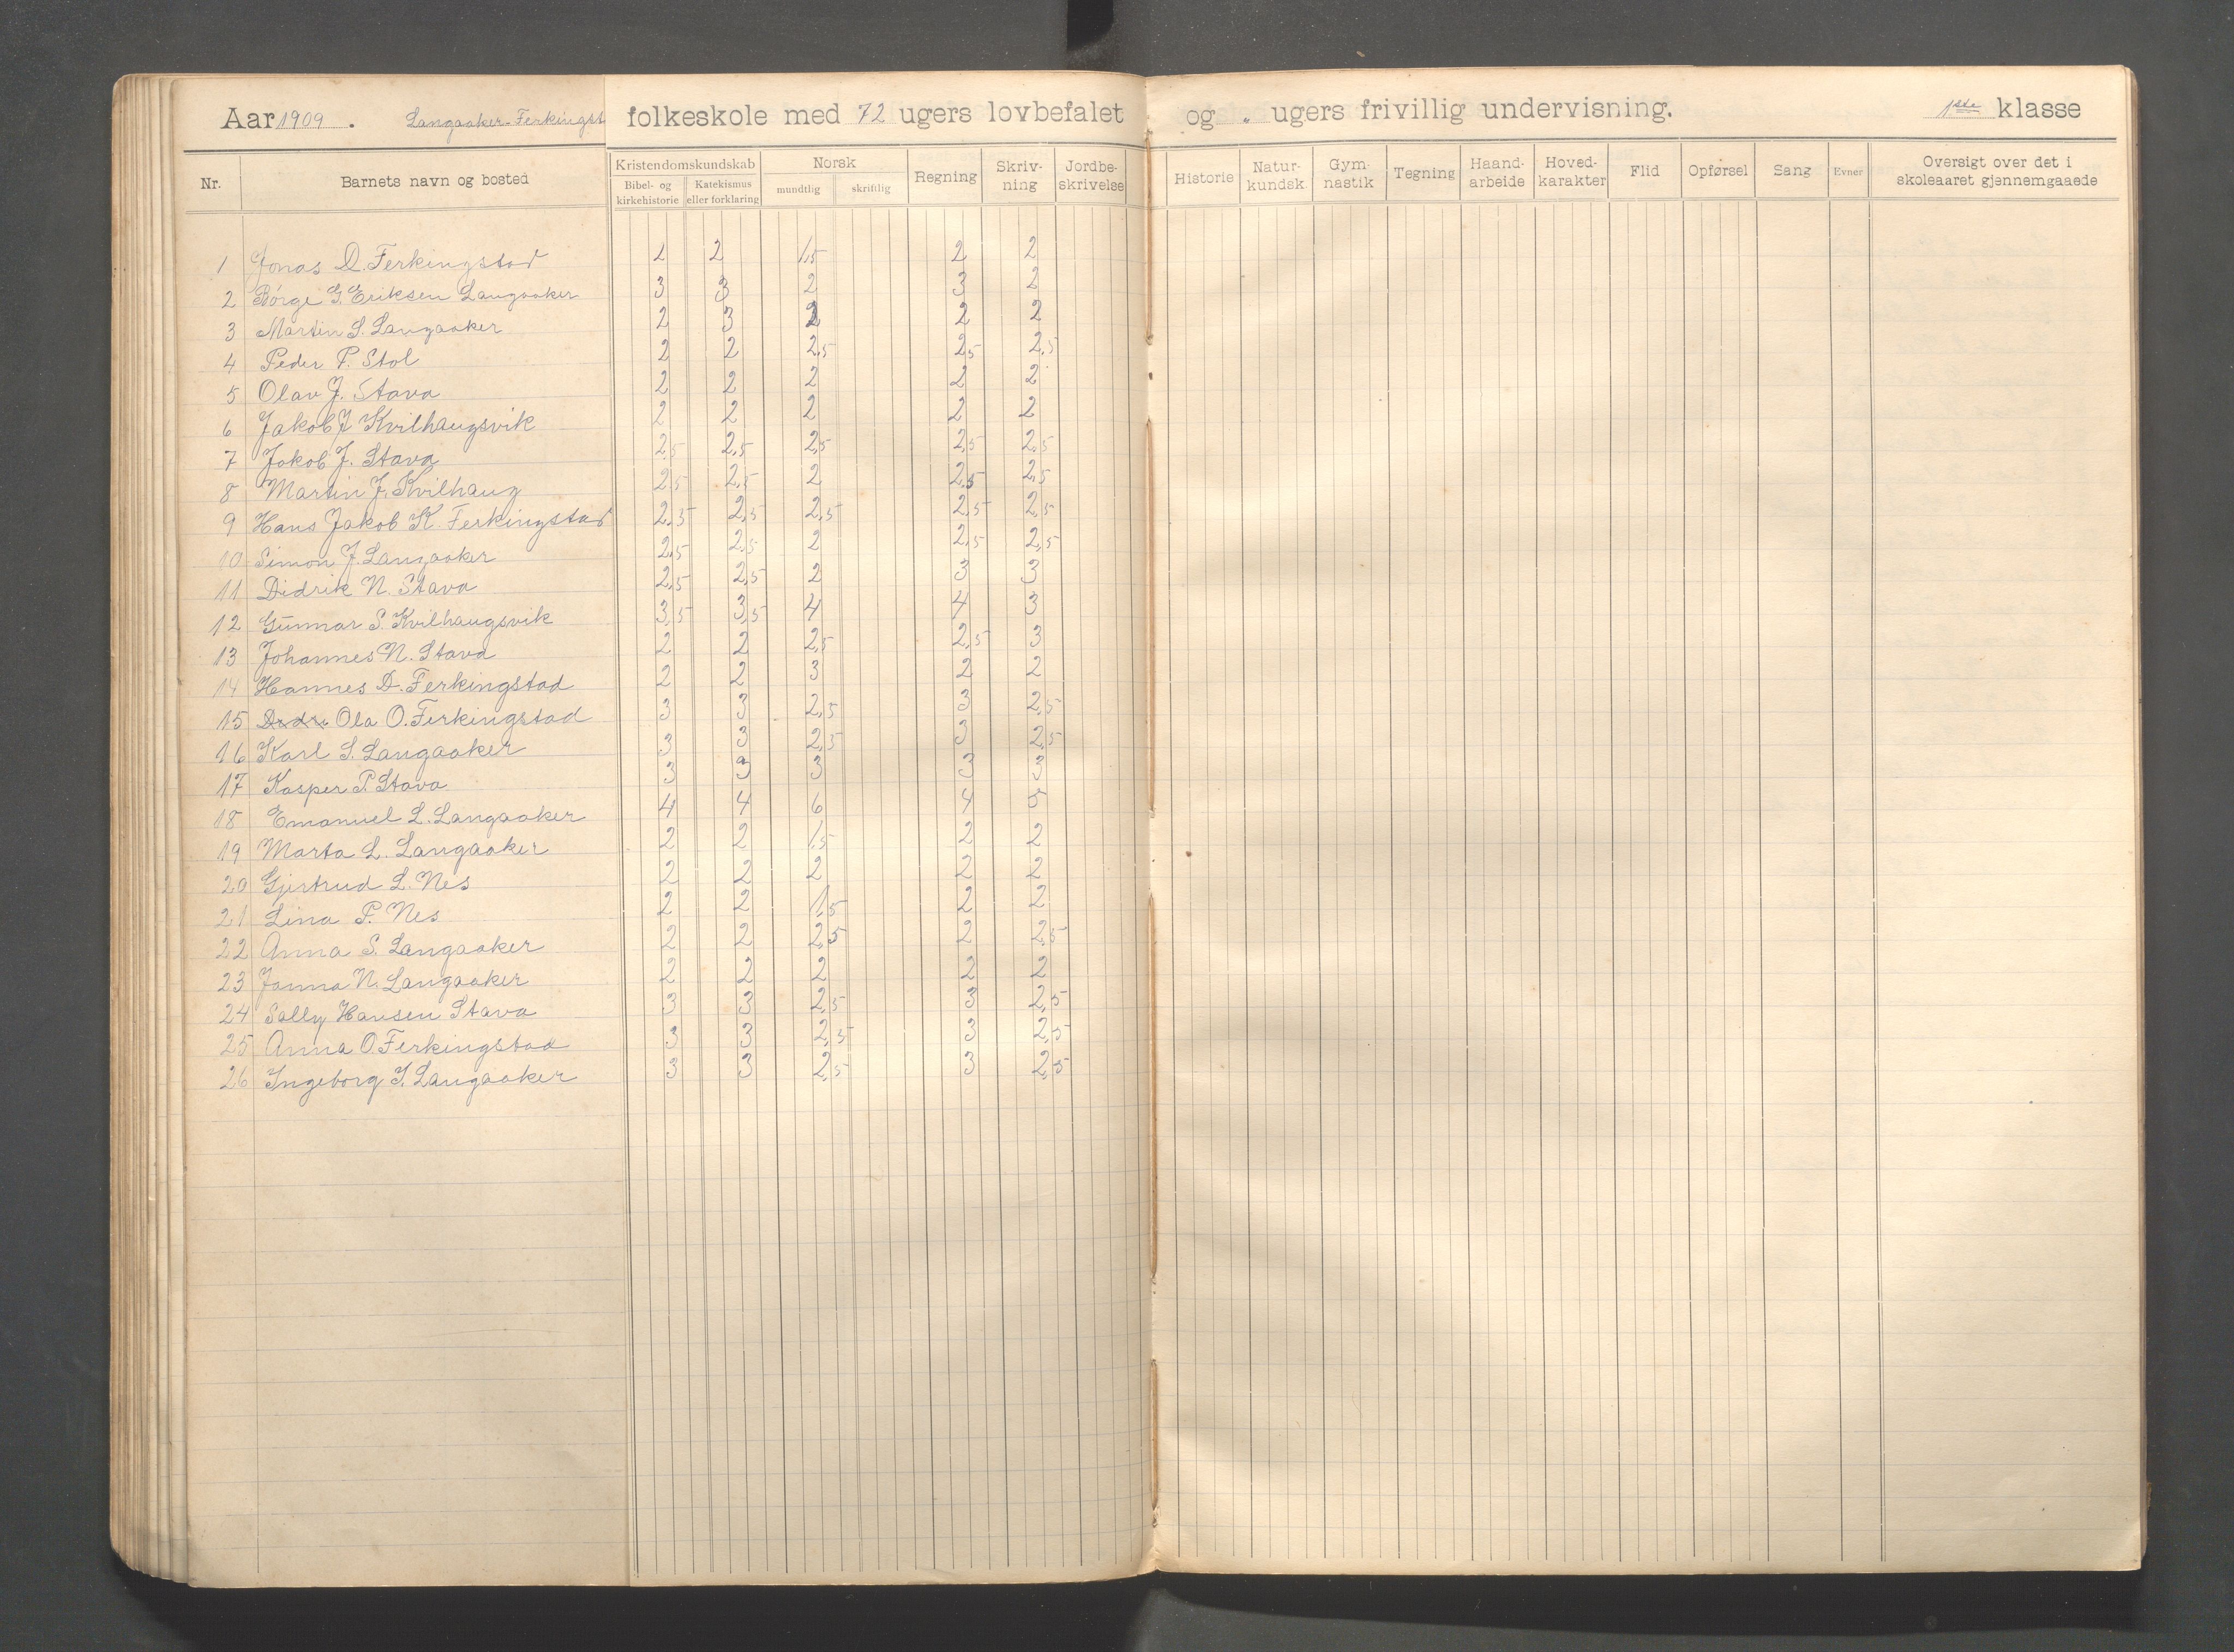 Aar 1909. Langaaker-Ferkingst folkeskole med 72 ugers lovbefalet og „ ugers frivillig undervisning. 1ste klasse
Nr. Barnets navn og bosted Kristendomskundskab Bibel- og kirkehistorie Katekismus eller forklaring Norsk mundtlig skriftlig Regning Skriv-ning Jordbe-skrivelse Historie Natur-kundsk. Gym-nastik Tegning Haand-arbeide Hoved-karakter Flid Opførsel Sang Evner Oversigt over det i skoleaaret gjennemgaaede
1 Jonas D. Ferkingstad 1 2 1,5 2 2
2 Börge G. Eriksen Langaaker 3 3 2 3 2
3 Martin S. Langaaker 2 3 2 2 2
4 Peder P. Stol 2 2 2,5 2,5 2,5
5 Olav J. Stava 2 2 2 2 2
6 Jakob J Kvilhaugsvik 2 2 2 2 2
7 Jakob J. Stava 2,5 2,5 2,5 2,5 2,5
8 Martin J. Kvilhaug 2,5 2,5 2 2,5 2,5
9 Hans Jakob K. Ferkingstad 2,5 2,5 2,5 2,5 2,5
10 Simon J. Langaaker 2,5 2,5 2 2,5 2,5
11 Didrik N. Stava 2,5 2,5 2 3 3
12 Gunnar S. Kvilhaugsvik 3,5 3,5 4 4 3
13 Johannes N. Stava 2 2 2,5 2,5 3
14 Hannes D. Ferkingstad 2 2 3 2 2
15 Ola O. Ferkingstad 3 3 2,5 3 2,5
16 Karl S. Langaaker 3 3 2,5 3 2,5
17 Kasper P. Stava 3 3 3 3 3
18 Emanuel L. Langaaker 4 4 6 4 5
19 Marta L. Langaaker 2 2 1,5 2 2
20 Gjertrud L. Nes 2 2 2 2 2
21 Lina P. Nes 2 2 1,5 2 2
22 Anna S. Langaaker 2 2 2,5 2 2,5
23 Janna N. Langaaker 2 2 2 2 2
24 Sally Hansen Stava 3 3 2,5 3 2,5
25 Anna O. Ferkingstad 3 3 2,5 3 2,5
26 Ingeborg I. Langaaker 3 3 2,5 3 2,5